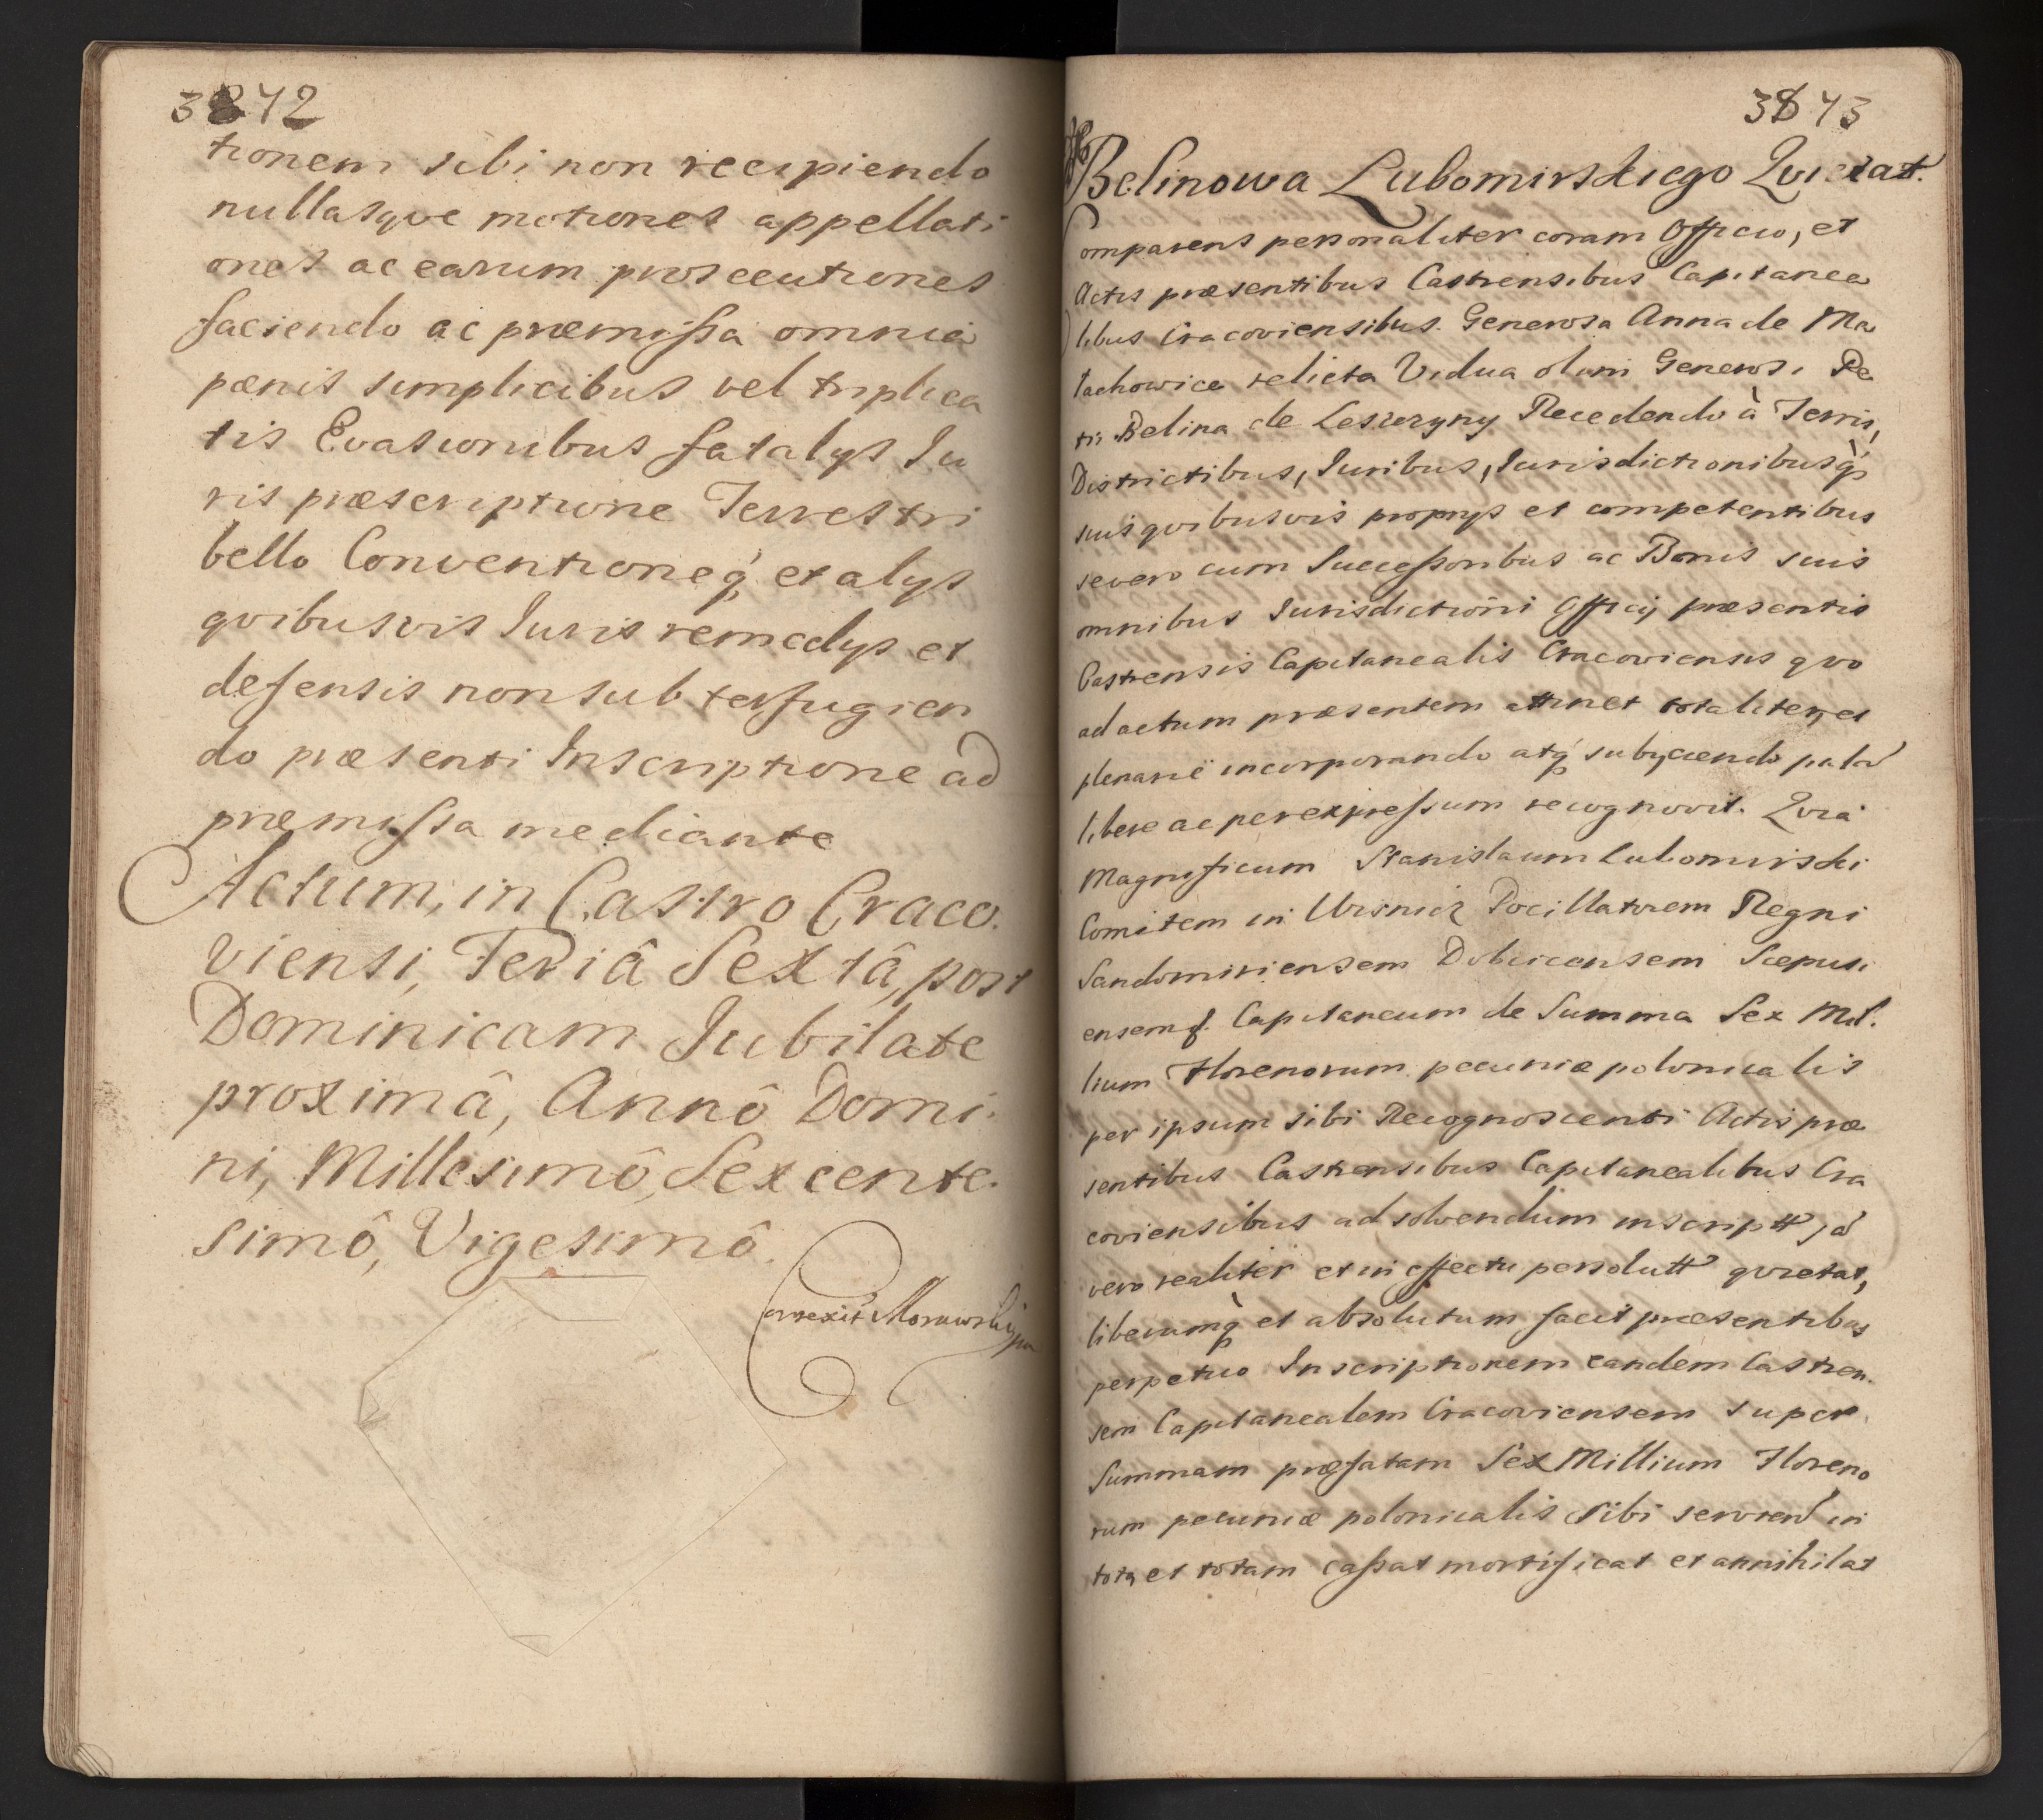 3842
tionem sibi non recipiendo
nullasqve motiones appellati
ones ac earum prosecutiones
faciendo ac præmissa omnia
pœnis simplicibus vel triplica
tis Evasionibus fatalys Iu
ris præscriptione Terrestri
bello Conventioneq₃ et alys
qvibusvis Iuris remedys et
defensis non subterfugien
do præsenti Inscriptione ad
præmissa mediante
Actum, in Castro Craco.
viensi, Feriâ Sextâ, post
Dominicam Jubilate
proximâ, Annô Domi.
ni, Millesimô, Sexcente.
simô, Vigesimô.
Correxit Morawski
3843
Belinowa Lubomirskiego Qvietat.
Comparens personaliter coram Officio, et
Actis præsentibus Castrensibus Capitanea
libus Cracoviensibus. Generosa Anna de Ma
lachowice relicta Vidua olim Generosi Pe
tri Belina de Leszczyny Recedendo à Terris,
Districtibus, Iuribus, Iurisdictionibusq₃
suis qvibusvis proprys et competentibus
se vero cum Successoribus ac Bonis suis
omnibus Iurisdictioni Officy præsentis
Castrensis Capitanealis Cracoviensis qvo
ad actum præsentem attinet totaliter, et
plenarie incorporando atq₃ subyciendo palã
libere ac per expressum recognovit. Qvia
Magnificum Stanislaum Lubomirski
Comitem in Wisnicz Pocillatorem Regni
Sandomiriensem Dobczicensem Scepusi
ensemq₃ Capitaneum de Summa Sex Mil.
lium Florenorum pecuniæ polonicalis
per ipsum sibi Recognoscenti Actis præ
sentibus Castrensibus Capitanealibus Cra
coviensibus ad solvendum inscriptt jã
vero realiter et in effectu persolutt qvietat,
liberumq₃ et absolutum facit præsentibus
perpetuo Inscriptionem eandem Castren.
sem Capitanealem Cracoviensem super
Summam præfatam Sex Millium Floreno
rum pecuniæ polonicalis sibi servien in
toto et totam cassat mortificat et annihilat